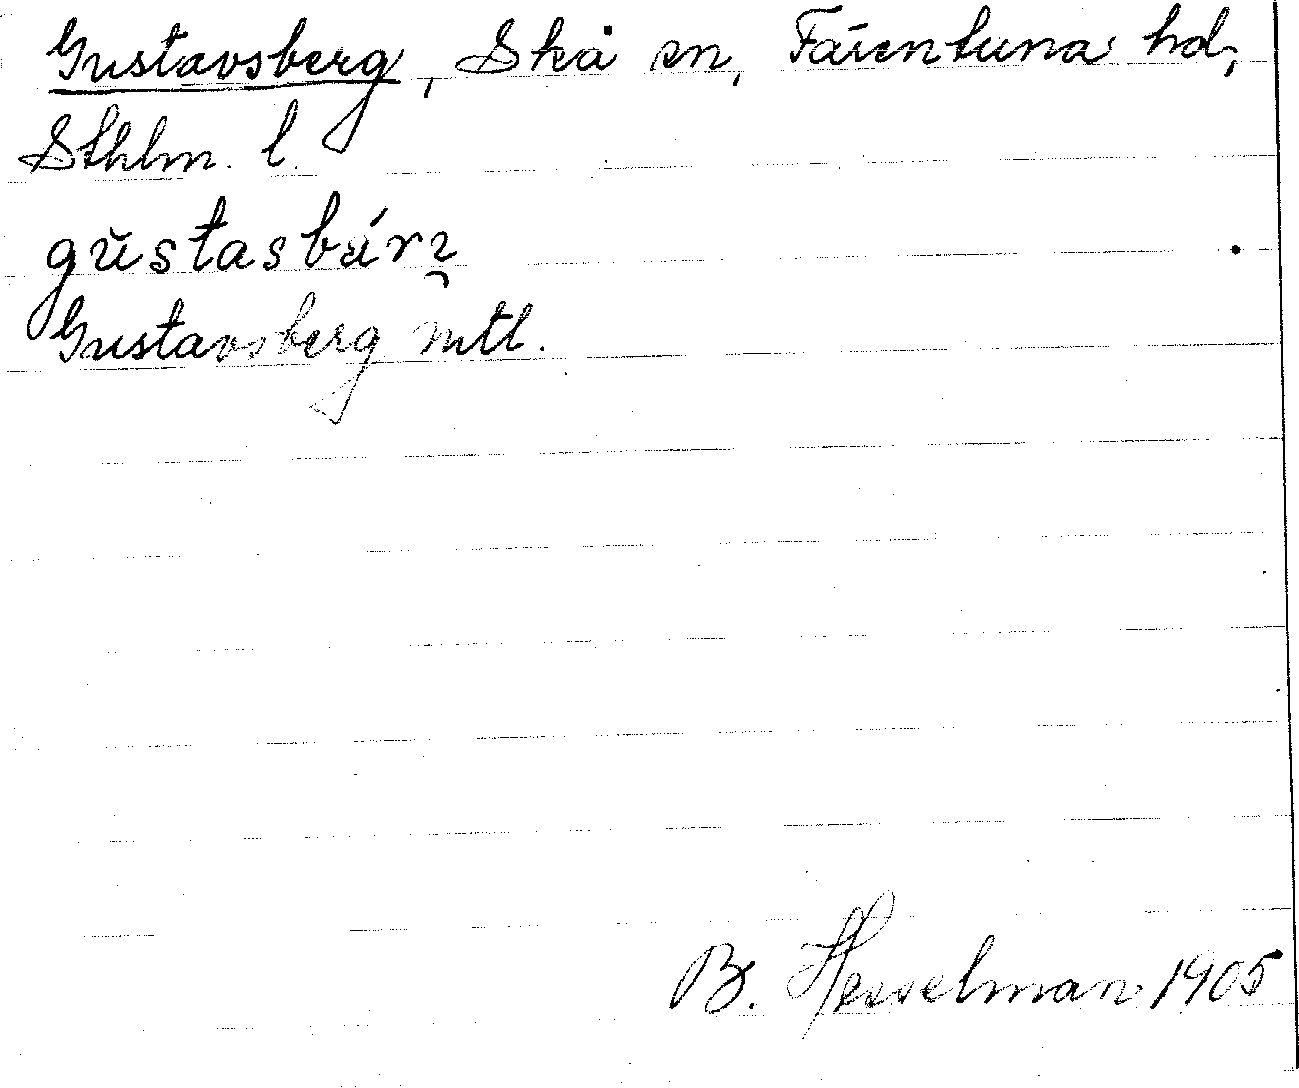 Gustavsberg, Skå sn, Färentuna hd,
Sthlm. l.
Gustavsberg mtl.
B. Hesselman 1905